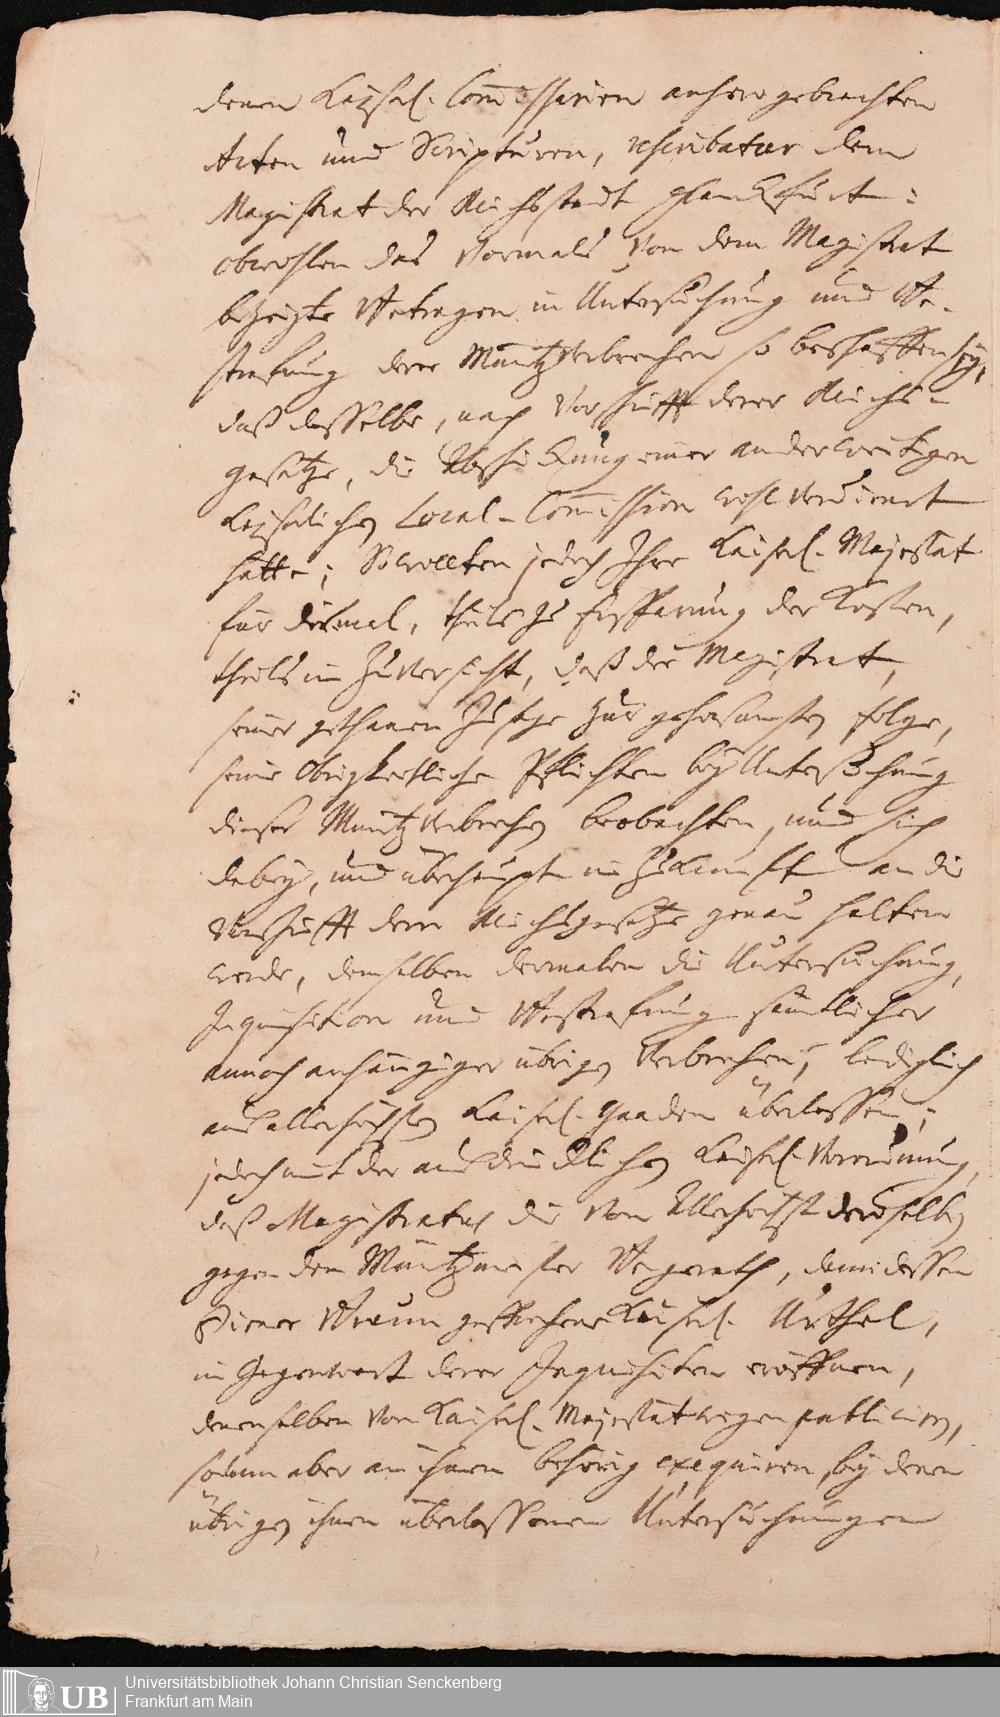 denen Kayserl. Commissarien anhero gebrachten
Acten und Scripturen, rescribatur dem
Magistrat der Reichsstadt Franckfurt:
obwohlen das vormals von dem Magistrat
bezeigte Betragen in Untersuchung und Be-
strafung derer Müntzverbrechen so beschaffen sey,
daß dasselbe, nach Vorschrifft derer Reichs-
gesetze, die Abschickung einer anderweitigen
Kayserlichen Local-Commission wohl verdient
hätte; So wollten jedoch Ihre Kaiserl. Majestät
für diesmal, theils zu Ersparung der Kosten,
theils in Zuversicht, daß der Magistrat,
seiner gethanen Zusage zur gehorsamsten Folge,
seine Obrigkeitliche Pflichten bey Untersuchung
dieser Müntzverbrechen beobachten, und sich
dabey, und überhaupt in Zukunfft an die
Vorschrifft derer Reichsgesetze genau halten
werde, demselben dermalen die Untersuchung,
Inquisition und Bestrafung sämtlicher
annoch anhängiger übrigen Verbrechen, lediglich
aus allerhöchsten Kaiserl. Gnaden überlassen;
jedoch mit der ausdrücklichen Kaiserl. Verordnung,
daß Magistratus die von Allerhöchst denenselben
gegen den Müntzmeister, dann dessen
Diener gesprochene Kaiserl. Urthel,
in Gegenwart derer Inquisiten eröffnen,
denenselben von Kaiserl. Majestät wegen publiciren,
sodann aber an ihnen behörig exequiren, bey denen
übrigen ihnen überlassenen Untersuchungen
Universitätsbibliothek Johann Christian Senckenberg
Frankfurt am Main
UB